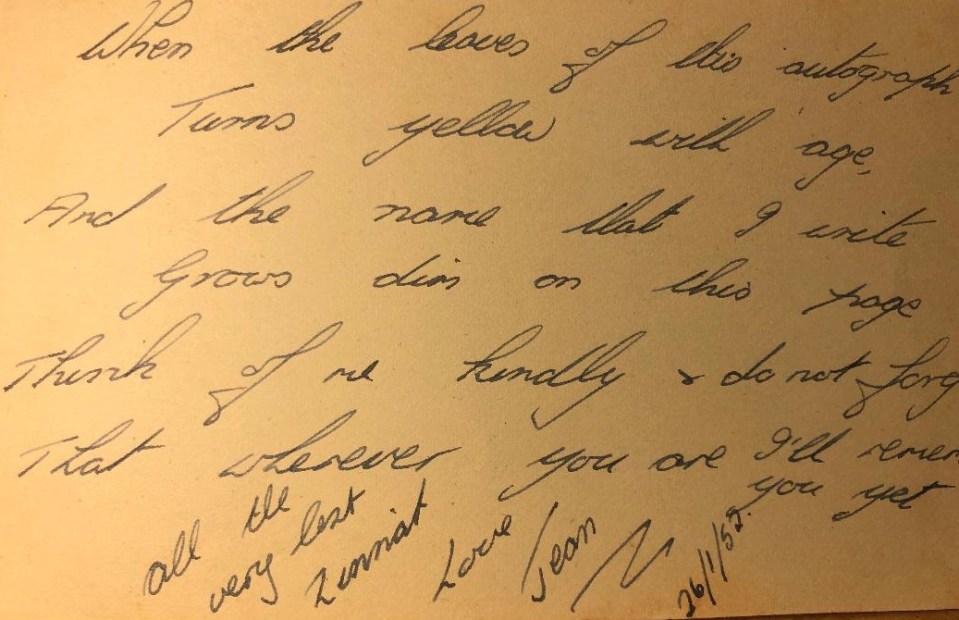 When the leaves of this autograph
Turns yellow with age,
And the name that I write
Grows dim on this page
Think of me kindly & do not forg
That wherever you are I'll remem
you yet
all the
very best
Zinniat
Love
Jean
26/1/52.